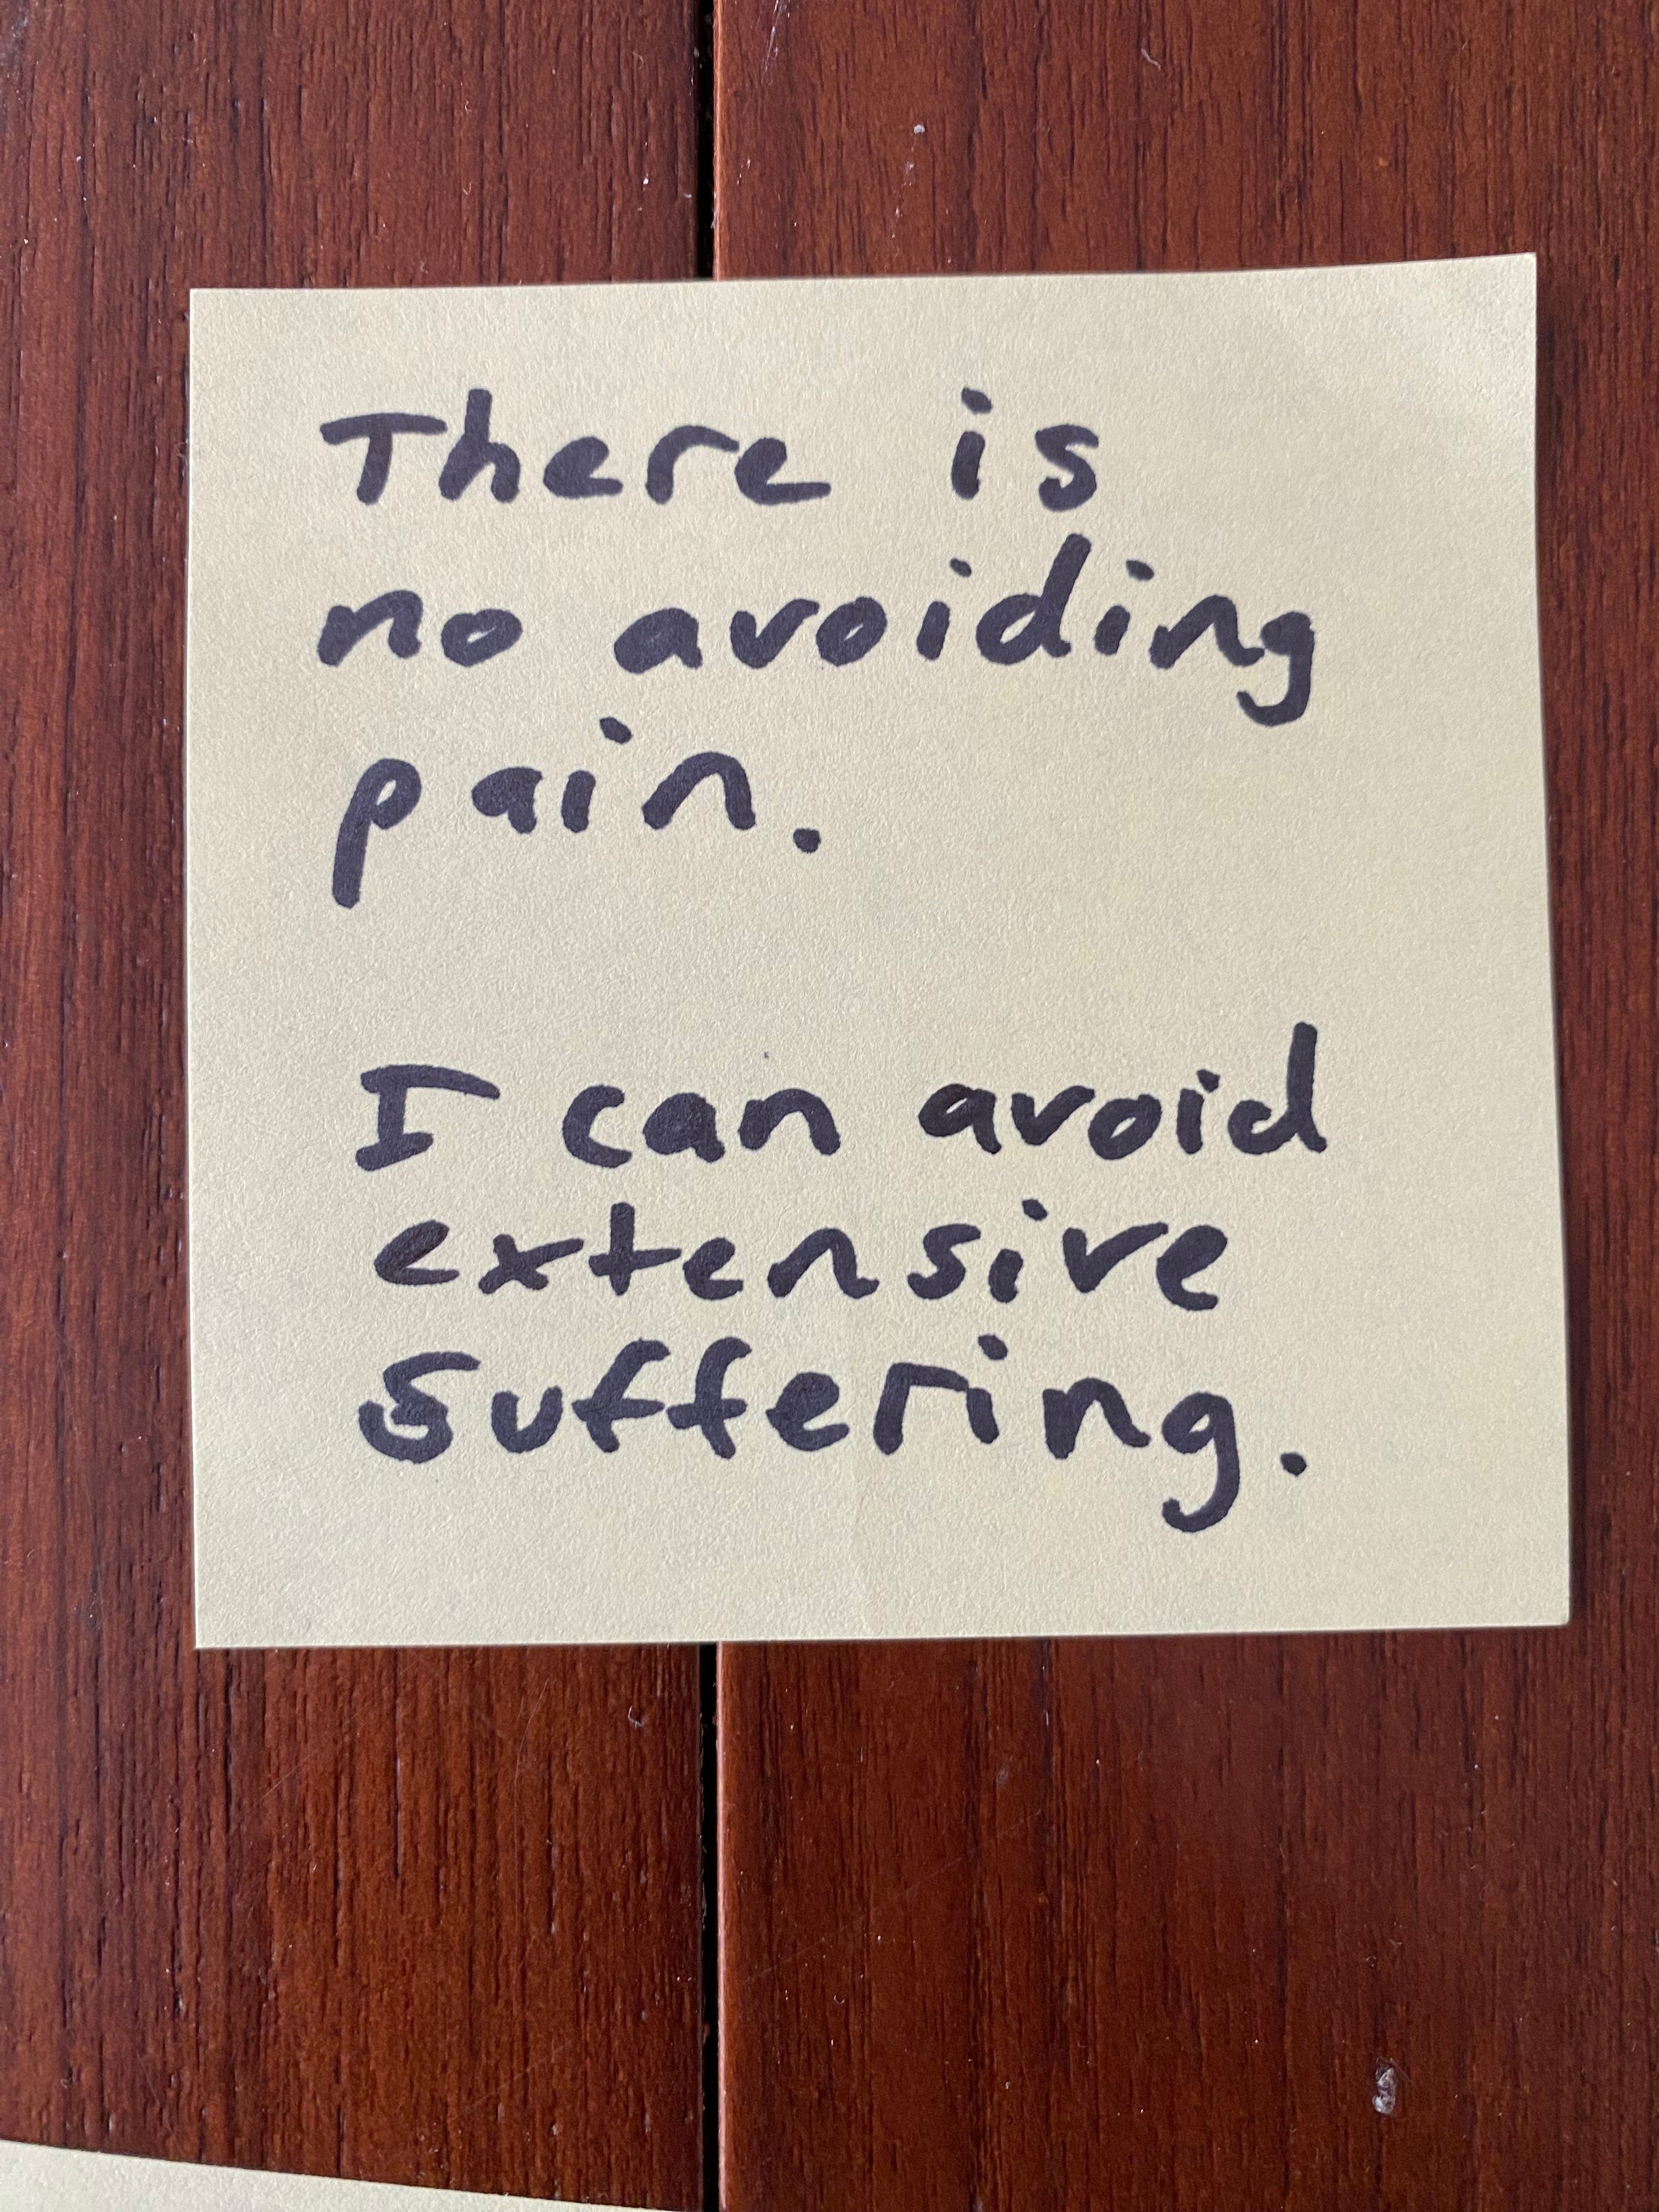 There is
no avoiding
pain.
I can avoid
extensive
suffering.